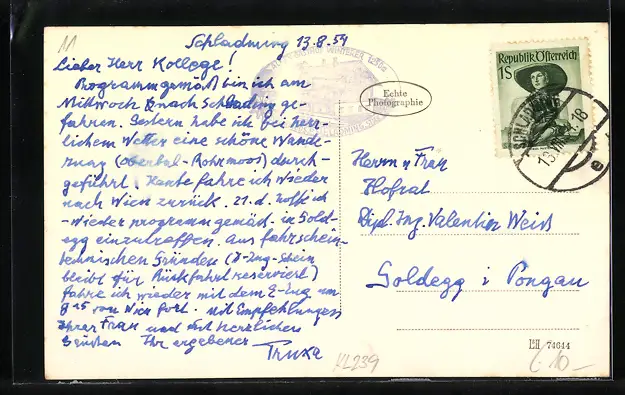 11
Schladming 13.8.54
Lieber Herr Kollege!
Programmgemäß bin ich am
Mittwoch nach Schladming ge-
fahren. Gestern habe ich bei herr-
lichem Wetter eine schöne Wande-
rung (Obertal-Rohrmoos) durch-
geführt. Heute fahre ich wieder
nach Wien zurück. 21. d. hoffe ich
wieder programmgemäß in Gold-
egg einzutreffen. Aus fahrschein-
technischen Gründen (D-Zug-Schein
bleibt für Rückfahrt reserviert)
fahre ich wieder mit dem E-Zug um
8 15 von Wien fort. Mit Empfehlungen
Ihrer Frau und mit herzlichen
Grüßen Ihr ergebener
Truxa
Echte
Photographie
Republik Österreich
1 S
SCHLADMING
18
Herrn u Frau
Hofrat
Dipl. Ing. Valentin Weiß
Goldegg i Pongau
74644
KL239